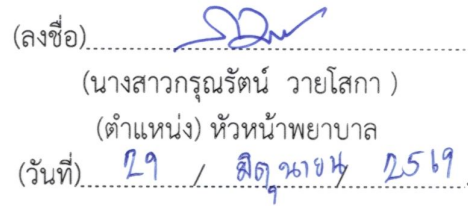 (ลงชื่อ)
(นางสาวกรุณรัตน์ วายโสกา )
(ตำแหน่ง) หัวหน้าพยาบาล
(วันที่) 29 / มิถุนายน / 2569